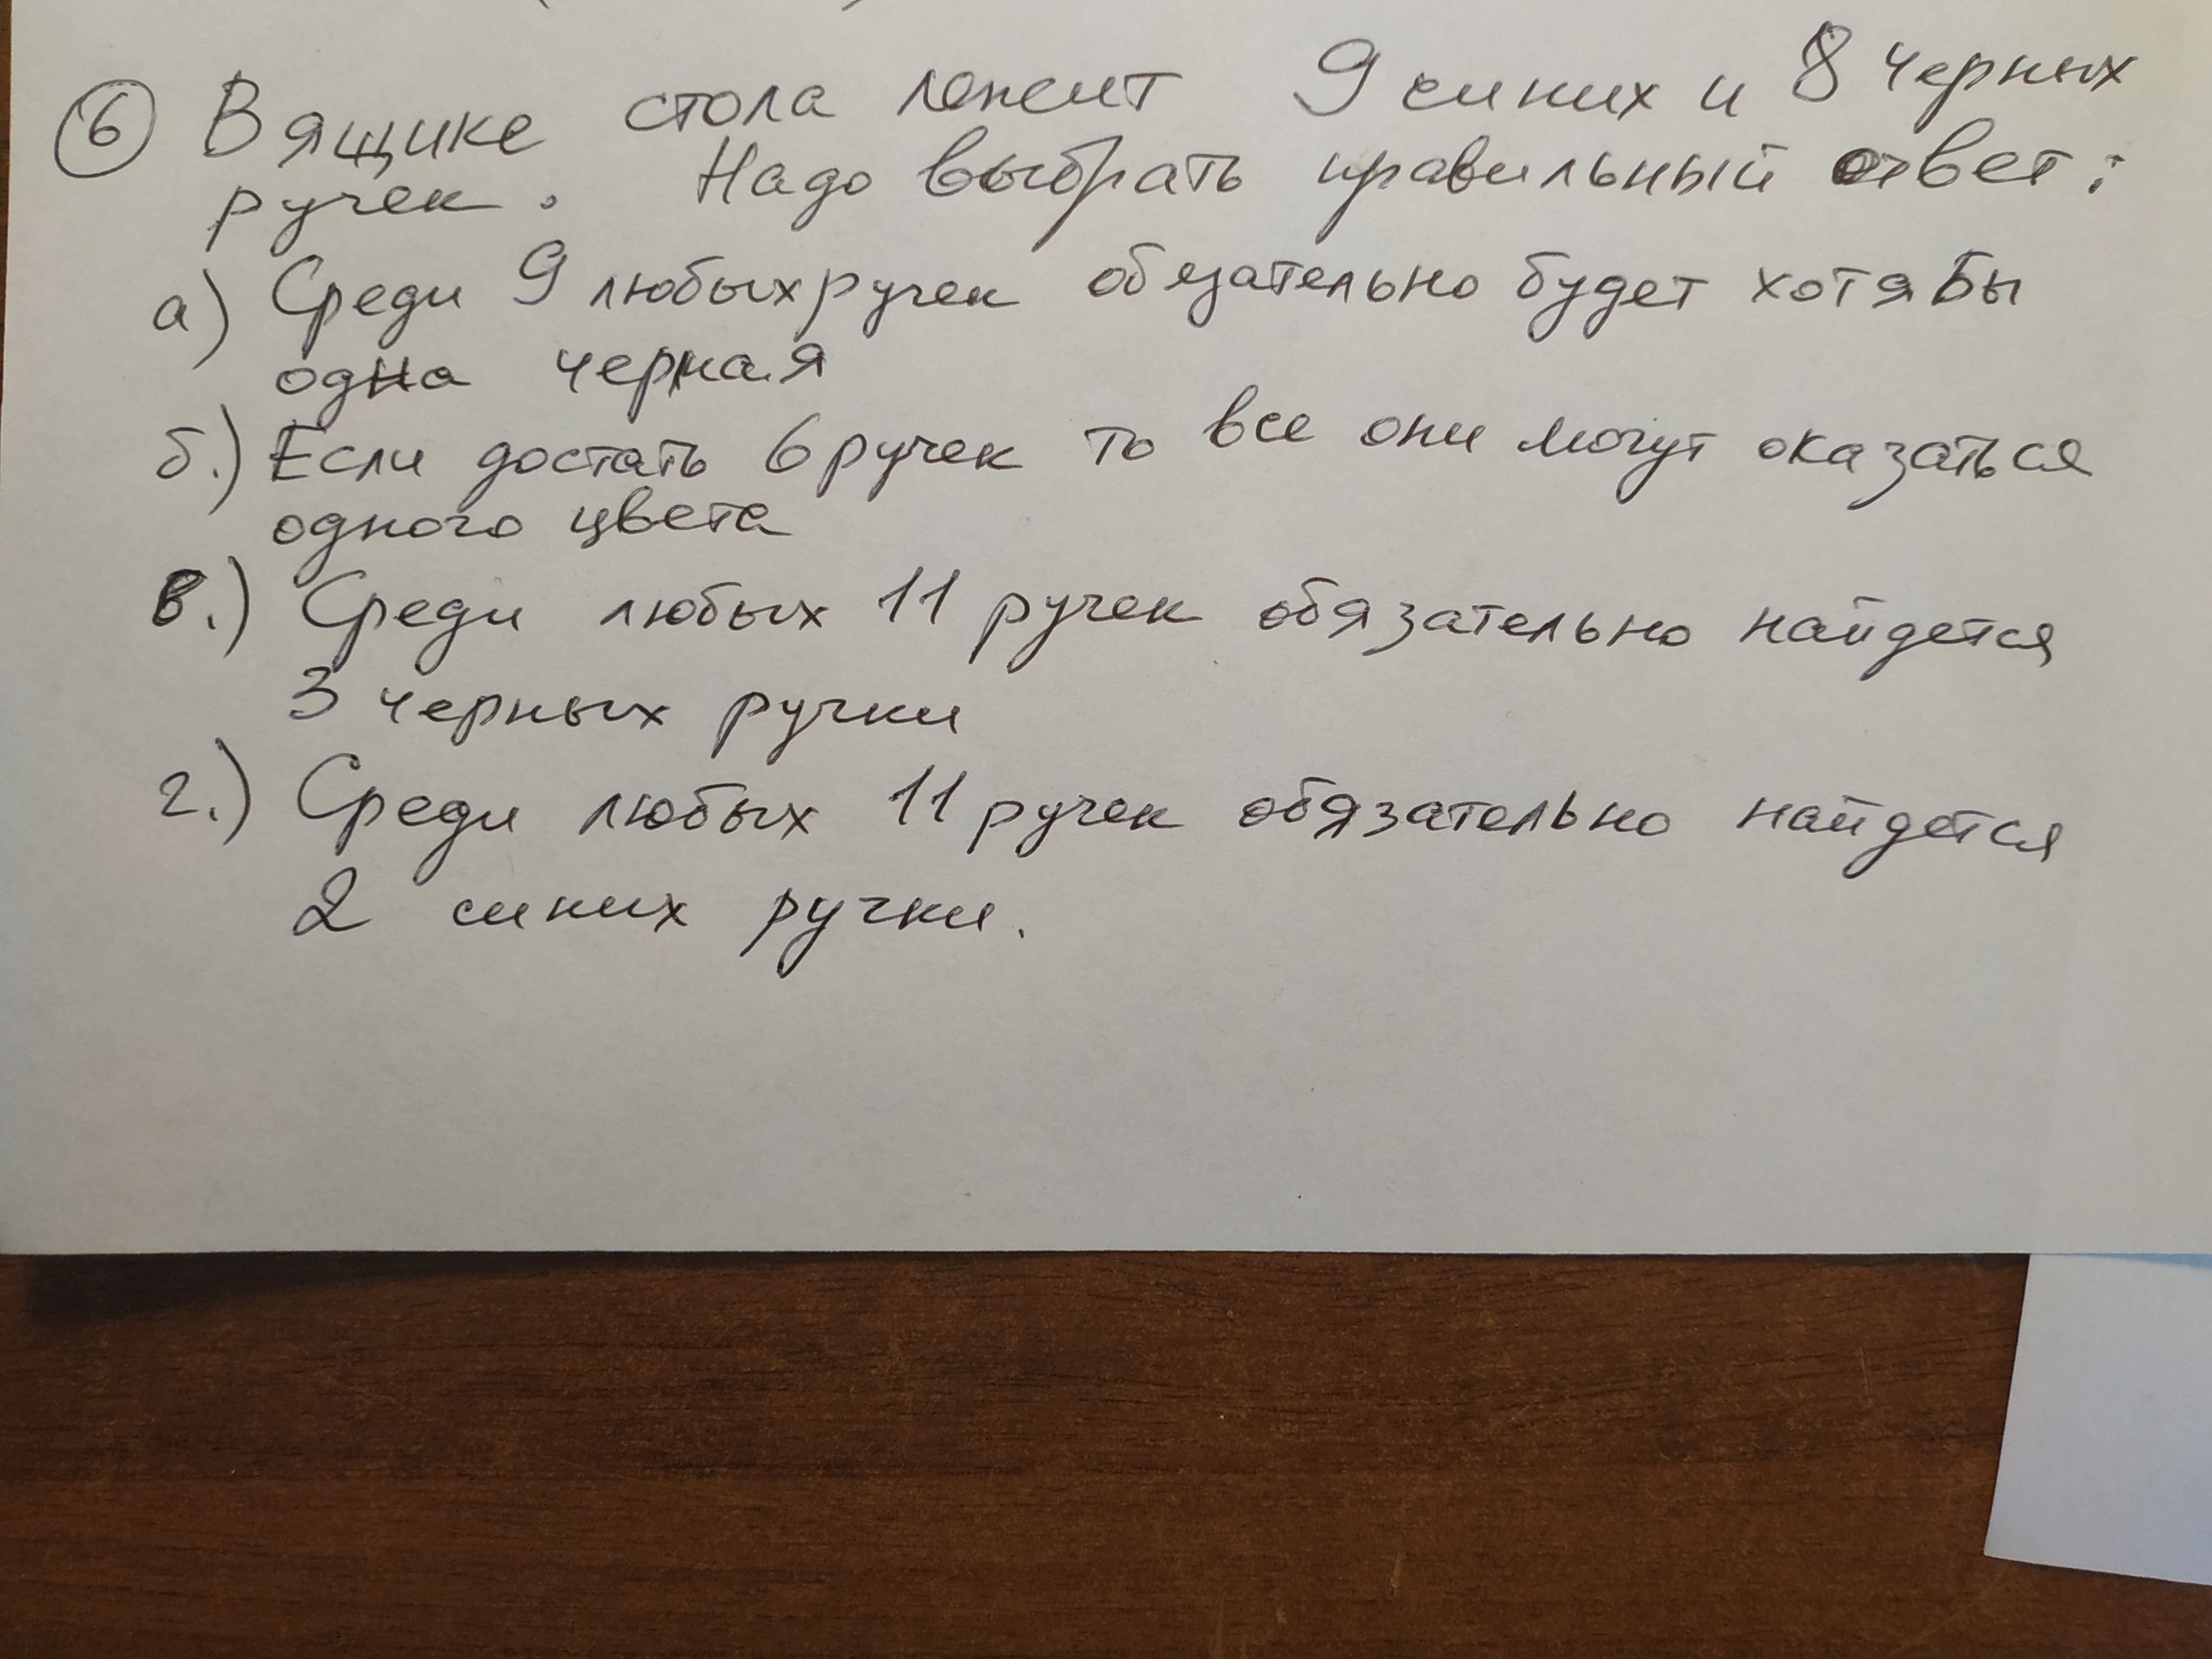 6 В ящике стола лежит 9 синих и 8 черных
ручек. Надо выбрать правильный ответ:
а) Среди 9 любых ручек обязательно будет хотя бы
одна черная
б.) Если достать 6 ручек то все они могут оказаться
одного цвета
в.) Среди любых 11 ручек обязательно найдется
3 черных ручки
г.) Среди любых 11 ручек обязательно найдется
2 синих ручки.